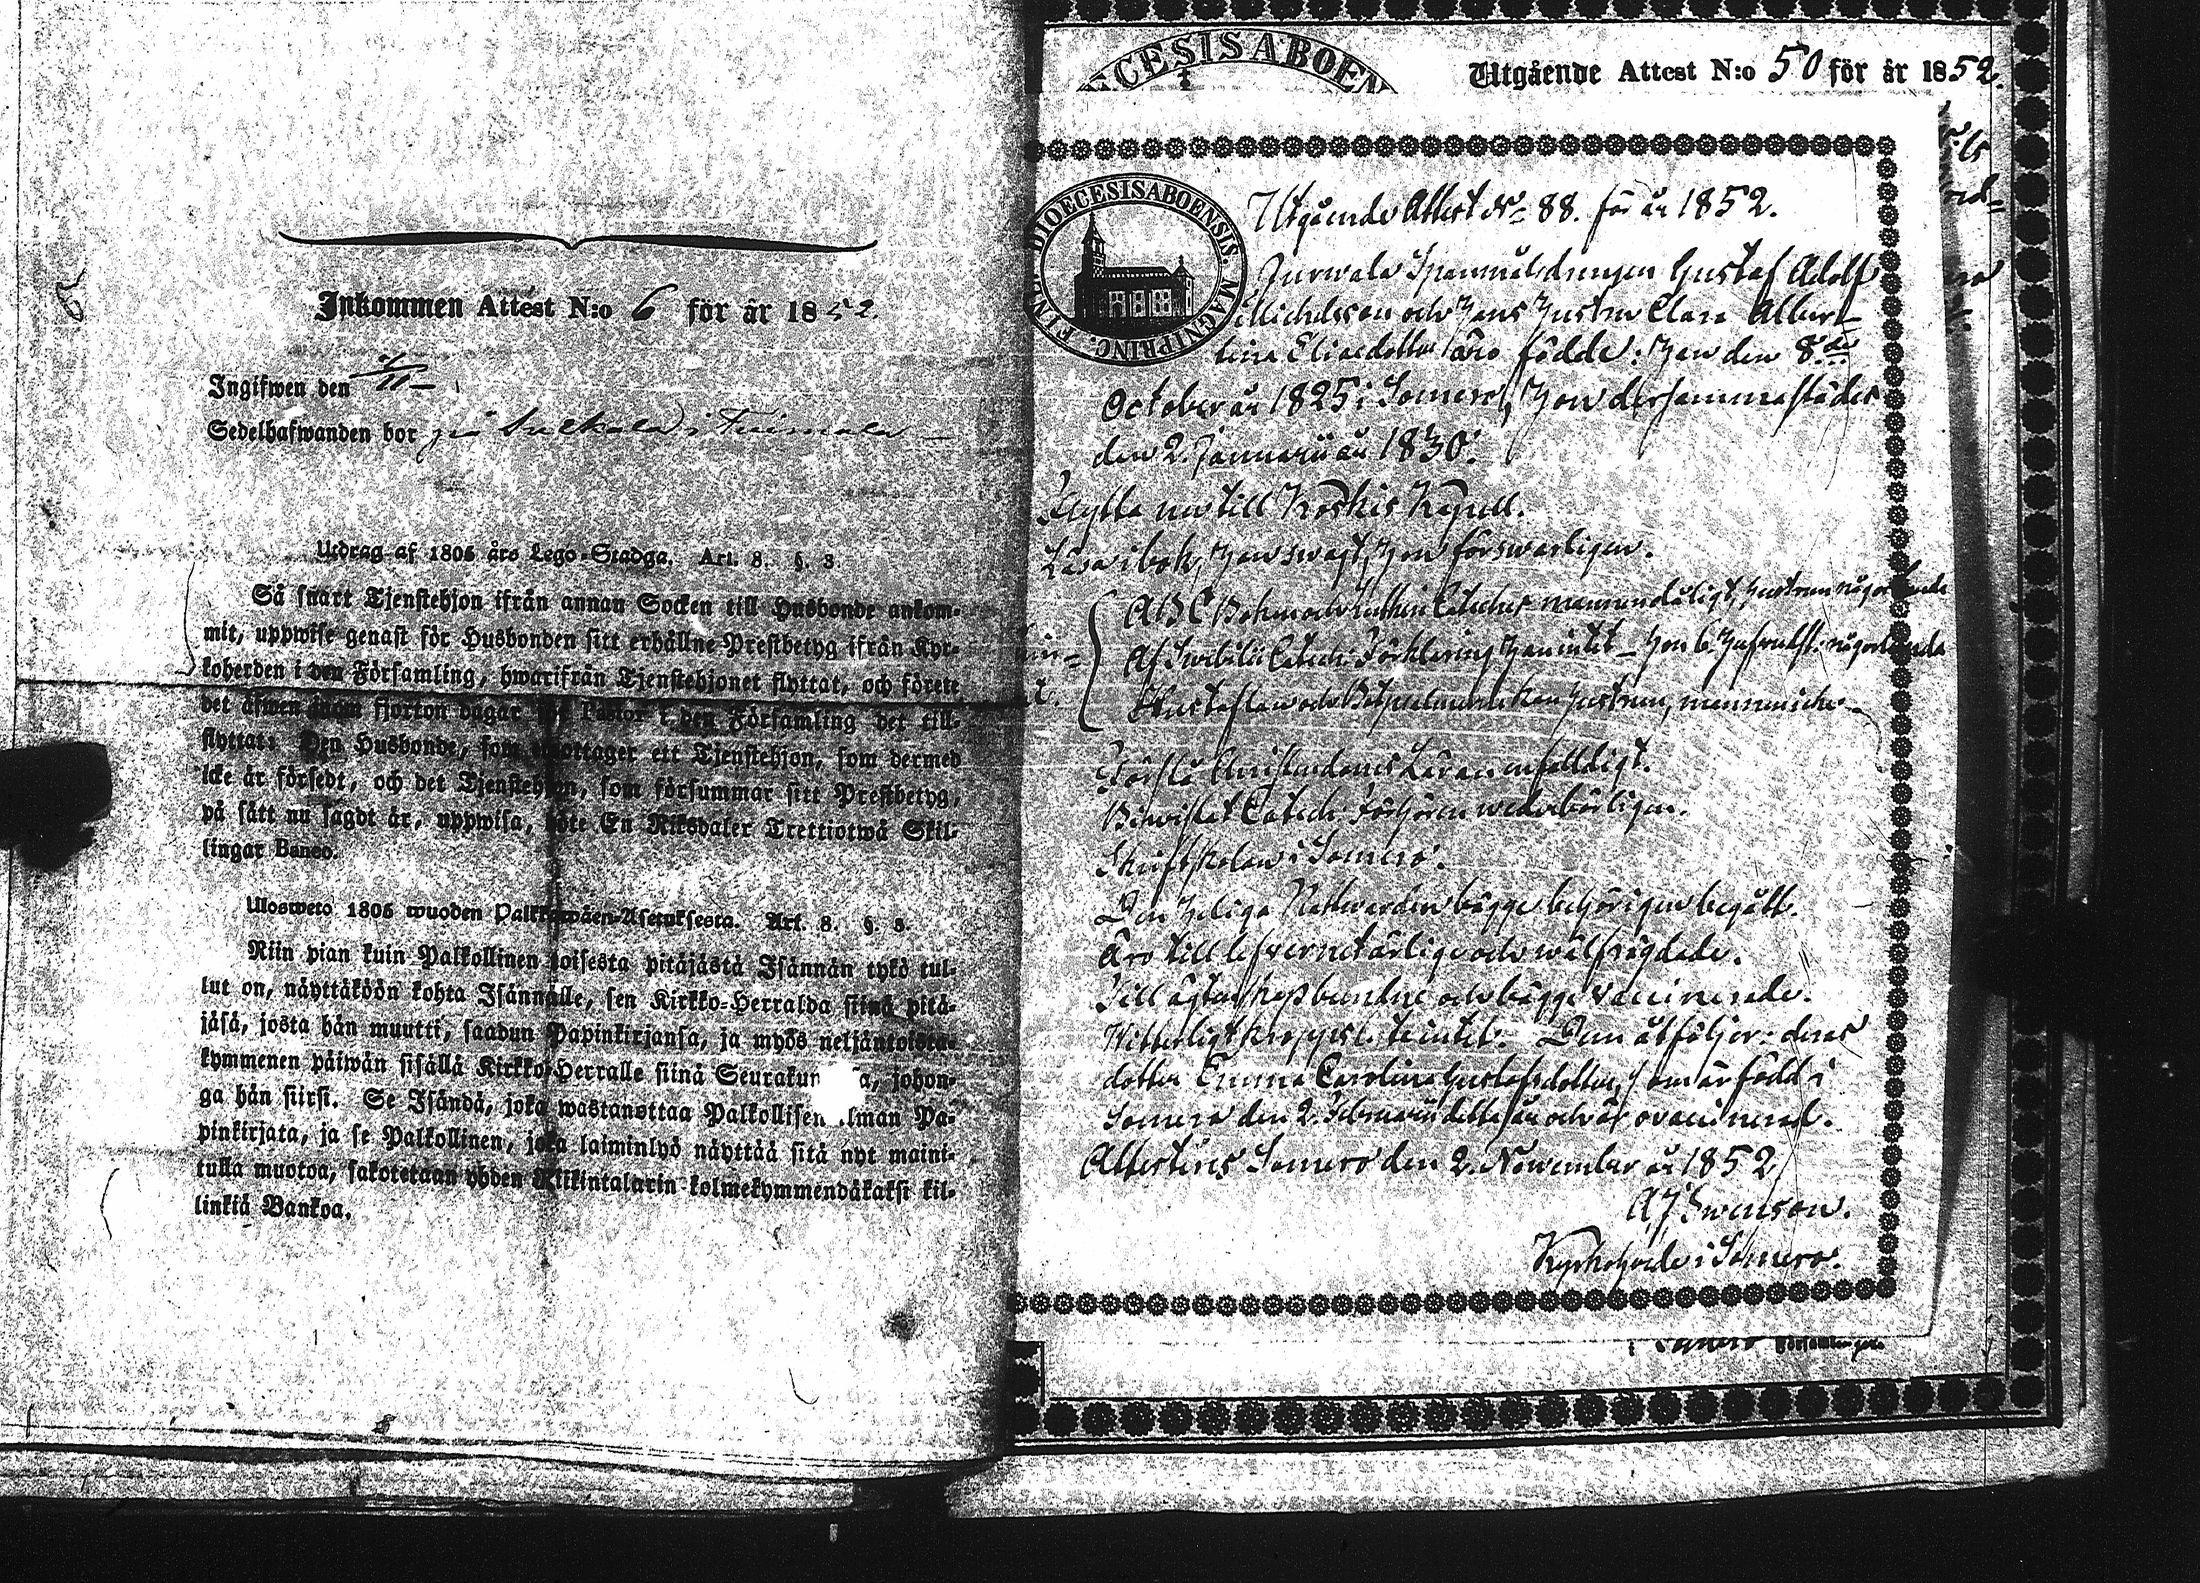 Inkommen Attest N:o 6 för år 1852.
Ingifwen den
Sedelhafwanden bor på i
Utdrag af 1805 års Lego-Stadga. Art. 8. §. 3.
Så snart Tjenstehjon ifrån annan Socken till Husbonde ankom-
mit, uppwise genast för Husbonden sitt erhållne Prestbetyg ifrån Kyr-
koherden i den Församling, hwarifrån Tjenstehjonet flyttat, och förete
det äfwen inom fjorton dagar för Pastor i den Församling det till-
flyttat: Den Husbonde, som emottager ett Tjenstehjon, som dermed
icke är försedt, och det Tjenstehjon, som försummar sitt Prestbetyg,
på sätt nu sagdt är, uppwisa, böte En Riksdaler Trettiotwå Skil-
lingar Banco.
Ulosweto 1805 wuoden Palkkawäen-Asetuksesta. Art. 8. §. 3.
Niin pian kuin Palkollinen toisesta pitäjästä Isännän tykö tul-
lut on, näyttäköön kohta Isännälle, sen Kirkko-Herralda siinä pitä-
jäsä, josta hän muutti, saadun Papinkirjansa, ja myös neljäntoista-
kymmenen päiwän sisällä Kirkko-Herralle siinä johon-
ga hän siirsi. Se Isändä, joka wastanottaa Pa-
pinkirjata, ja se Palkollinen, joka laiminlyö näyttää sitä nyt maini-
tulla muotoa, sakotetaan yhden Riikintalarin kolmekymmendäkaksi kil-
linkiä Bankoa.
Utgående Attest N:o 50 för år 1852.
DIOECESIS ABOENSIS. MAGNI PRINC. FINL.
Utgående Attest No 88. för år 1852.
Spanmålsdrengen Gustaf Adolf
Michelsson och Hans Hustru Clara Alber-
tina Eliaedotter äro födde: Han den 8de
October år 1825 i Somero, Hon dersammastädes
den 2. Januarii år 1830.
Flytta nu till Koskis Kapell.
Läsa i bok, Han swagt, Hon förswarligen.
ABC Boken och Lutheri Cateches mannen dåligt, hustrun någorlunda
Af Swebilii Catech: Förklaring Han intet - Hon någorlunda
Hustaflan och hustrun, mannen icke
Förstå Christendomens Läran enfaldigt.
Bewistat Catech: Förhören wederbörligen.
Skriftskolan i Somero.
Den Heliga Nattwarden bägge behörigen begått.
Äro till lefvernet ärlige och wälfrägdade.
Till ägtenskap bundne och bägge vaccinerade.
Witterligt kroppsl. lyte intet. Dem åtföljer: deras
dotter Emma Carolina Gustafsdotter, som är född i
Somero den 2. Februarii detta år och är ovaccinerad.
Attesteres Somero den 2. November år 1852
AJ Swenson.
Kyrkoherde i Somero.
i Somero Församlingar.